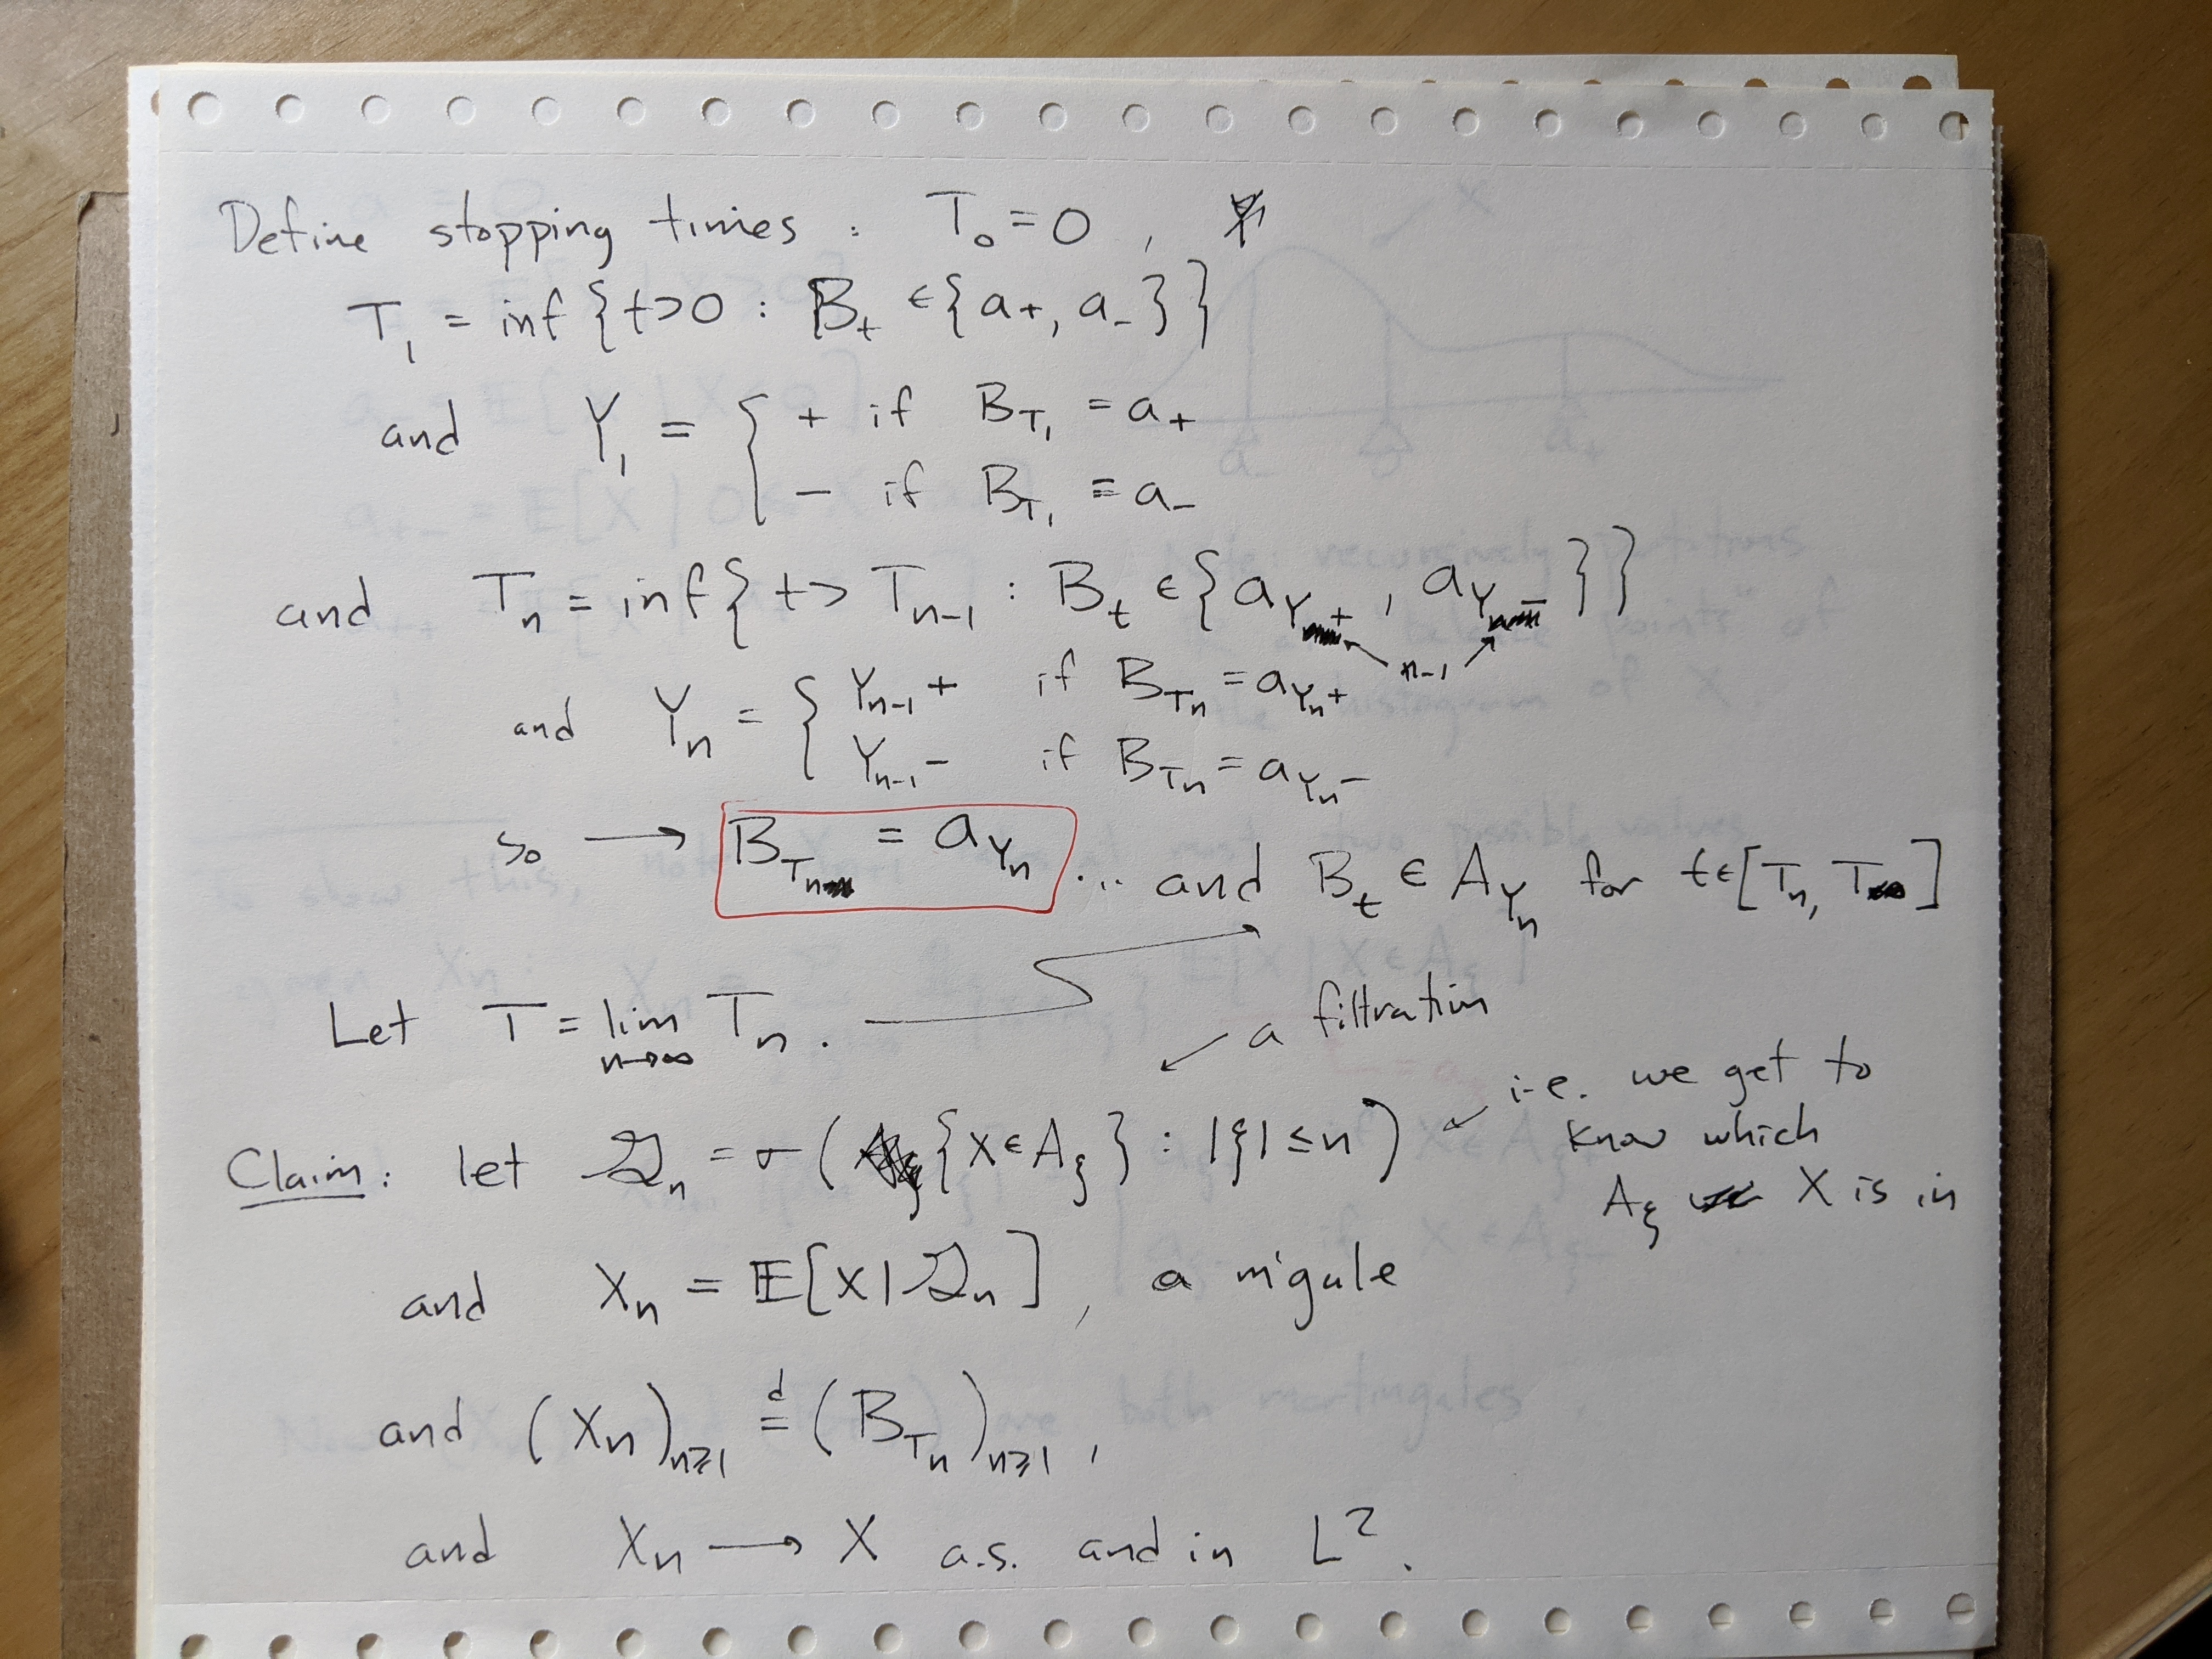 Define stopping times : T₀ = 0 ,
T₁ = inf { t>0 : B_t ∈ {a₊, a₋} }
and Y₁ = { + if B_{T₁} = a₊
− if B_{T₁} = a₋
and T_n = inf { t > T_{n-1} : B_t ∈ { a_{Y+}, a_{Y−} } }
n-1
and Y_n = { Y_{n-1}+ if B_{T_n} = a_{Y_n+}
Y_{n-1}− if B_{T_n} = a_{Y_n−}
so → B_{T_n} = a_{Y_n} ... and B_t ∈ A_{Y_n} for t∈[T_n, T]
Let T = lim_{n→∞} T_n .
a filtration
Claim: let 𝒢_n = σ( {X∈A_ξ} : |ξ| ≤ n )
i.e. we get to
know which
A_ξ X is in
and X_n = 𝔼[X|𝒢_n] , a m'gale
and (X_n)_{n≥1} =^d (B_{T_n})_{n≥1} ,
and X_n → X a.s. and in L² .